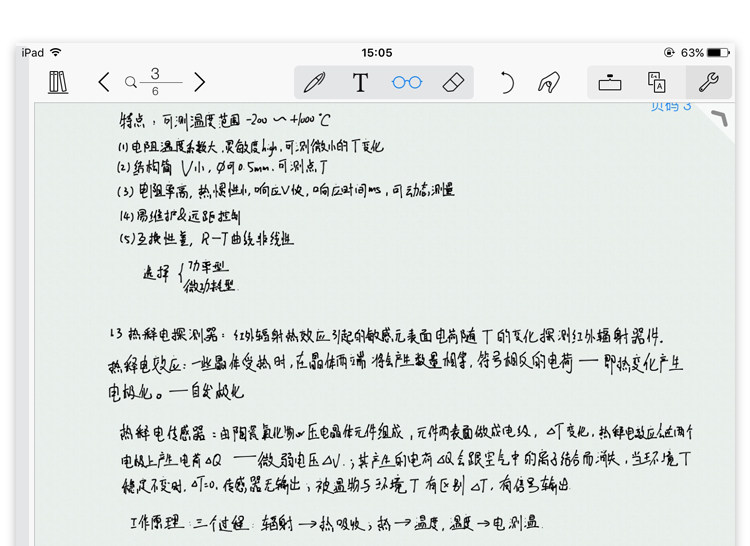 iPad 15:05 63%
3
6
T
页码 3
特点：可测温度范围 -200 ~ +1000 °C
(1) 电阻温度系数大，灵敏度high，可测微小的T变化
(2) 结构简 V小，Φ可0.5mm，可测点T
(3) 电阻率高，热惯性小，响应V快，响应时间ms，可动态测量
(4) 易维护&远距控制
(5) 互换性差，R-T曲线非线性
选择 { 功率型
微功耗型
13 热释电探测器：红外辐射热效应引起的敏感元表面电荷随T的变化探测红外辐射器件.
热释电效应：一些晶体受热时，在晶体两端将会产生数量相等，符号相反的电荷 — 即热变化产生
电极化。— 自发极化
热释电传感器：由陶瓷氧化物or压电晶体元件组成，元件两表面做成电级，ΔT变化，热释电效应会在两个
电极上产生电荷ΔQ — 微弱电压ΔV.；其产生的电荷ΔQ会跟空气中的离子结合而消失，当环境T
稳定不变时，ΔT=0，传感器无输出；被温物与环境T有区别ΔT，有信号输出.
工作原理：三个过程：辐射→热吸收；热→温度，温度→电测温.